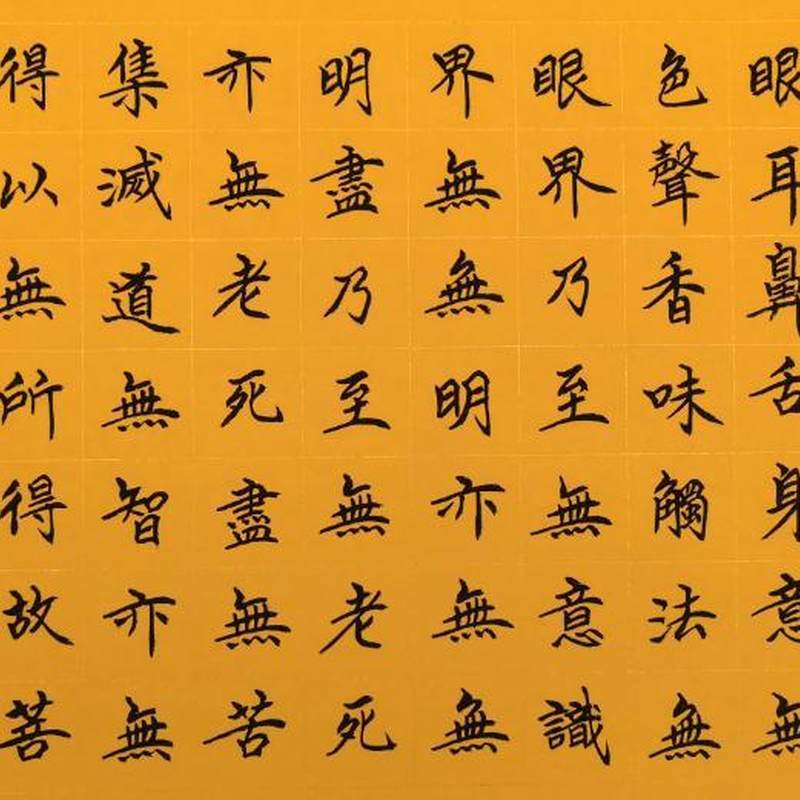 眼耳鼻舌身意無
色聲香味觸法無
眼界乃至無意識
界無無明亦無無
明盡乃至無老死
亦無老死盡無苦
集滅道無智亦無
得以無所得故菩